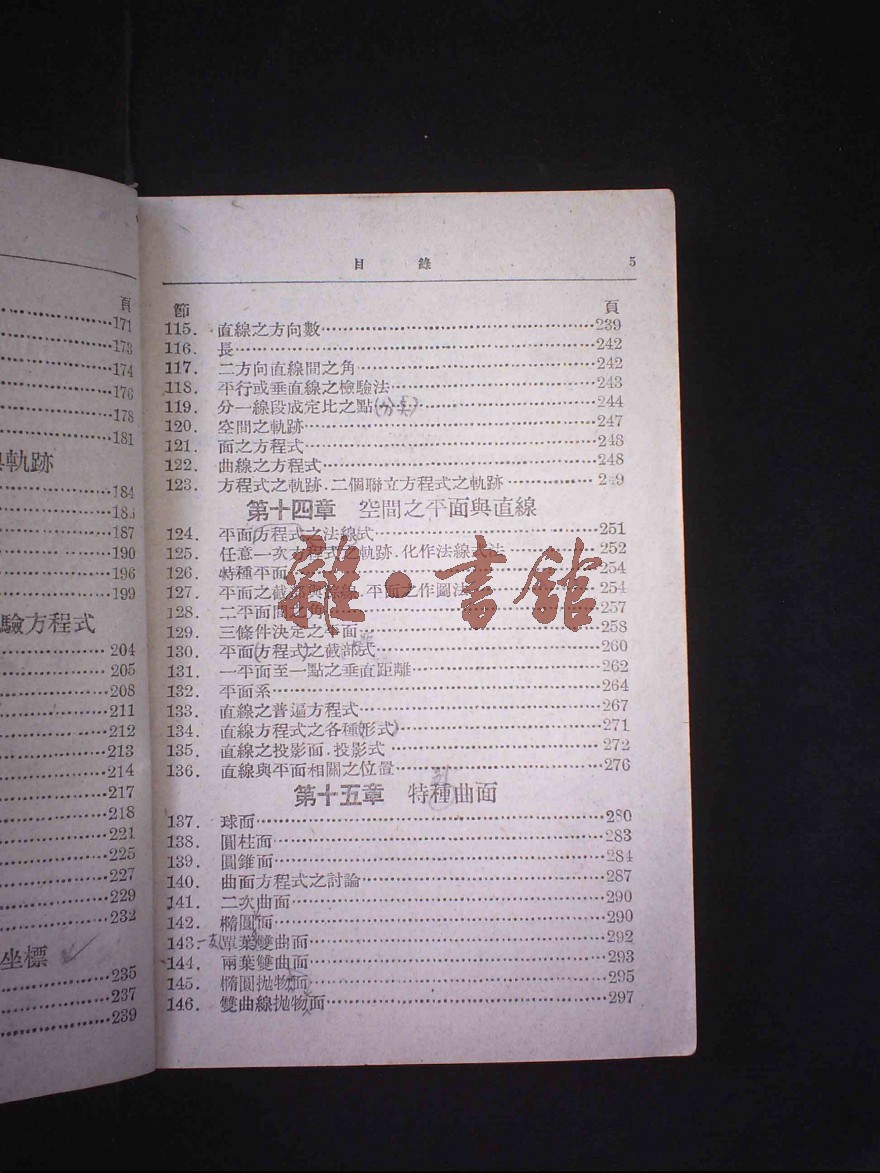 頁
171
173
174
176
178
181
軌跡
184
187
190
196
199
驗方程式
204
205
208
211
212
213
214
217
218
221
225
227
229
232
坐標
235
237
239
目 錄 5
節 頁
115. 直線之方向數 239
116. 長 242
117. 二方向直線間之角 242
118. 平行或垂直線之檢驗法 243
119. 分一線段成定比之點 244
120. 空間之軌跡 247
121. 面之方程式 248
122. 曲線之方程式 248
123. 方程式之軌跡.二個聯立方程式之軌跡 2 9
第十四章 空間之平面與直線
124. 平面(方程式)之法線式 251
125. 任意一次方程式之軌跡.化作法線式法 252
126. 特種平面 254
127. 平面之截部與 平面之作圖法 254
128. 二平面間之角 257
129. 三條件決定之平面 258
130. 平面(方程式)之截部式 260
131. 一平面至一點之垂直距離 262
132. 平面系 264
133. 直線之普遍方程式 267
134. 直線方程式之各種(形式) 271
135. 直線之投影面.投影式 272
136. 直線與平面相關之位置 276
第十五章 特種曲面
137. 球面 280
138. 圓柱面 283
139. 圓錐面 284
140. 曲面方程式之討論 287
141. 二次曲面 290
142. 橢圓面 290
143. 單葉雙曲面 292
144. 兩葉雙曲面 293
145. 橢圓拋物面 295
146. 雙曲線拋物面 297
雜·書館